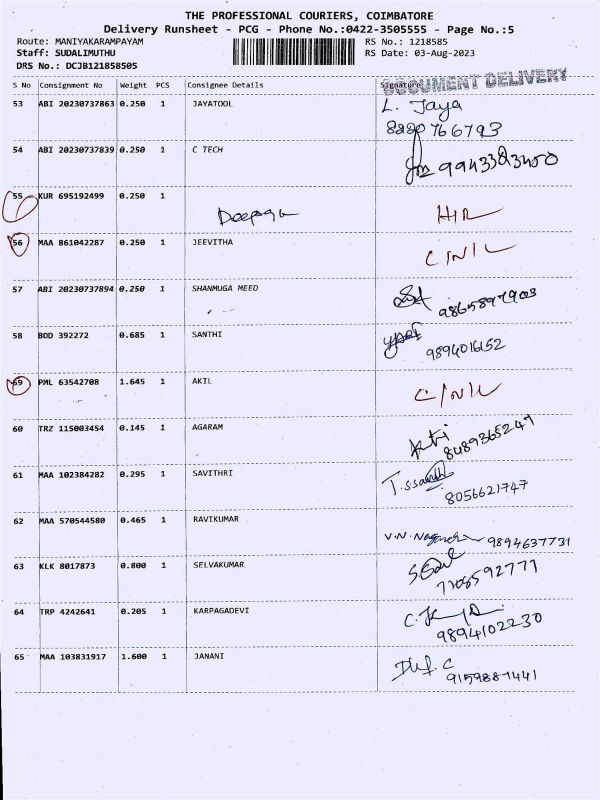 THE PROFESSIONAL COURIERS, COIMBATORE
Delivery Runsheet - PCG - Phone No.:0422-3505555 - Page No.:5
Route: MANIYAKARAMPAYAM RS No.: 1218585
Staff: SUDALIMUTHU RS Date: 03-Aug-2023
DRS No.: DCJB121858505
DOCUMENT DELIVERY
S No Consignment No Weight PCS Consignee Details Signature
53 ABI 20230737863 0.250 1 JAYATOOL L. Jaya
8220766793
54 ABI 20230737839 0.250 1 C TECH 9943383450
55 KUR 695192499 0.250 1
Deepak H/R
56 MAA 861042287 0.250 1 JEEVITHA C/N/L
57 ABI 20230737894 0.250 1 SHANMUGA MEED
9865897903
58 BOD 392272 0.685 1 SANTHI
9894016152
59 PML 63542708 1.645 1 AKIL C/N/L
60 TRZ 115003454 0.145 1 AGARAM
8489365249
61 MAA 102384282 0.295 1 SAVITHRI
8056621747
62 MAA 570544580 0.465 1 RAVIKUMAR
9894637731
63 KLK 8017873 0.800 1 SELVAKUMAR
64 TRP 4242641 0.205 1 KARPAGADEVI
9894102230
65 MAA 103831917 1.600 1 JANANI
9159887441